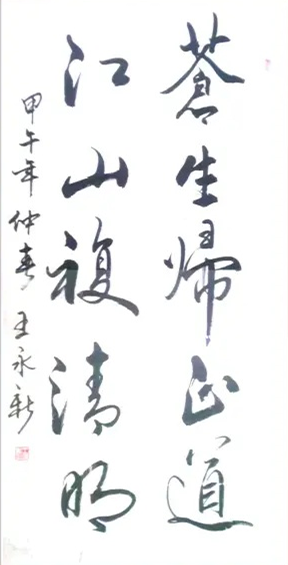 蒼生歸正道
江山複清明
甲午年仲春 王永新